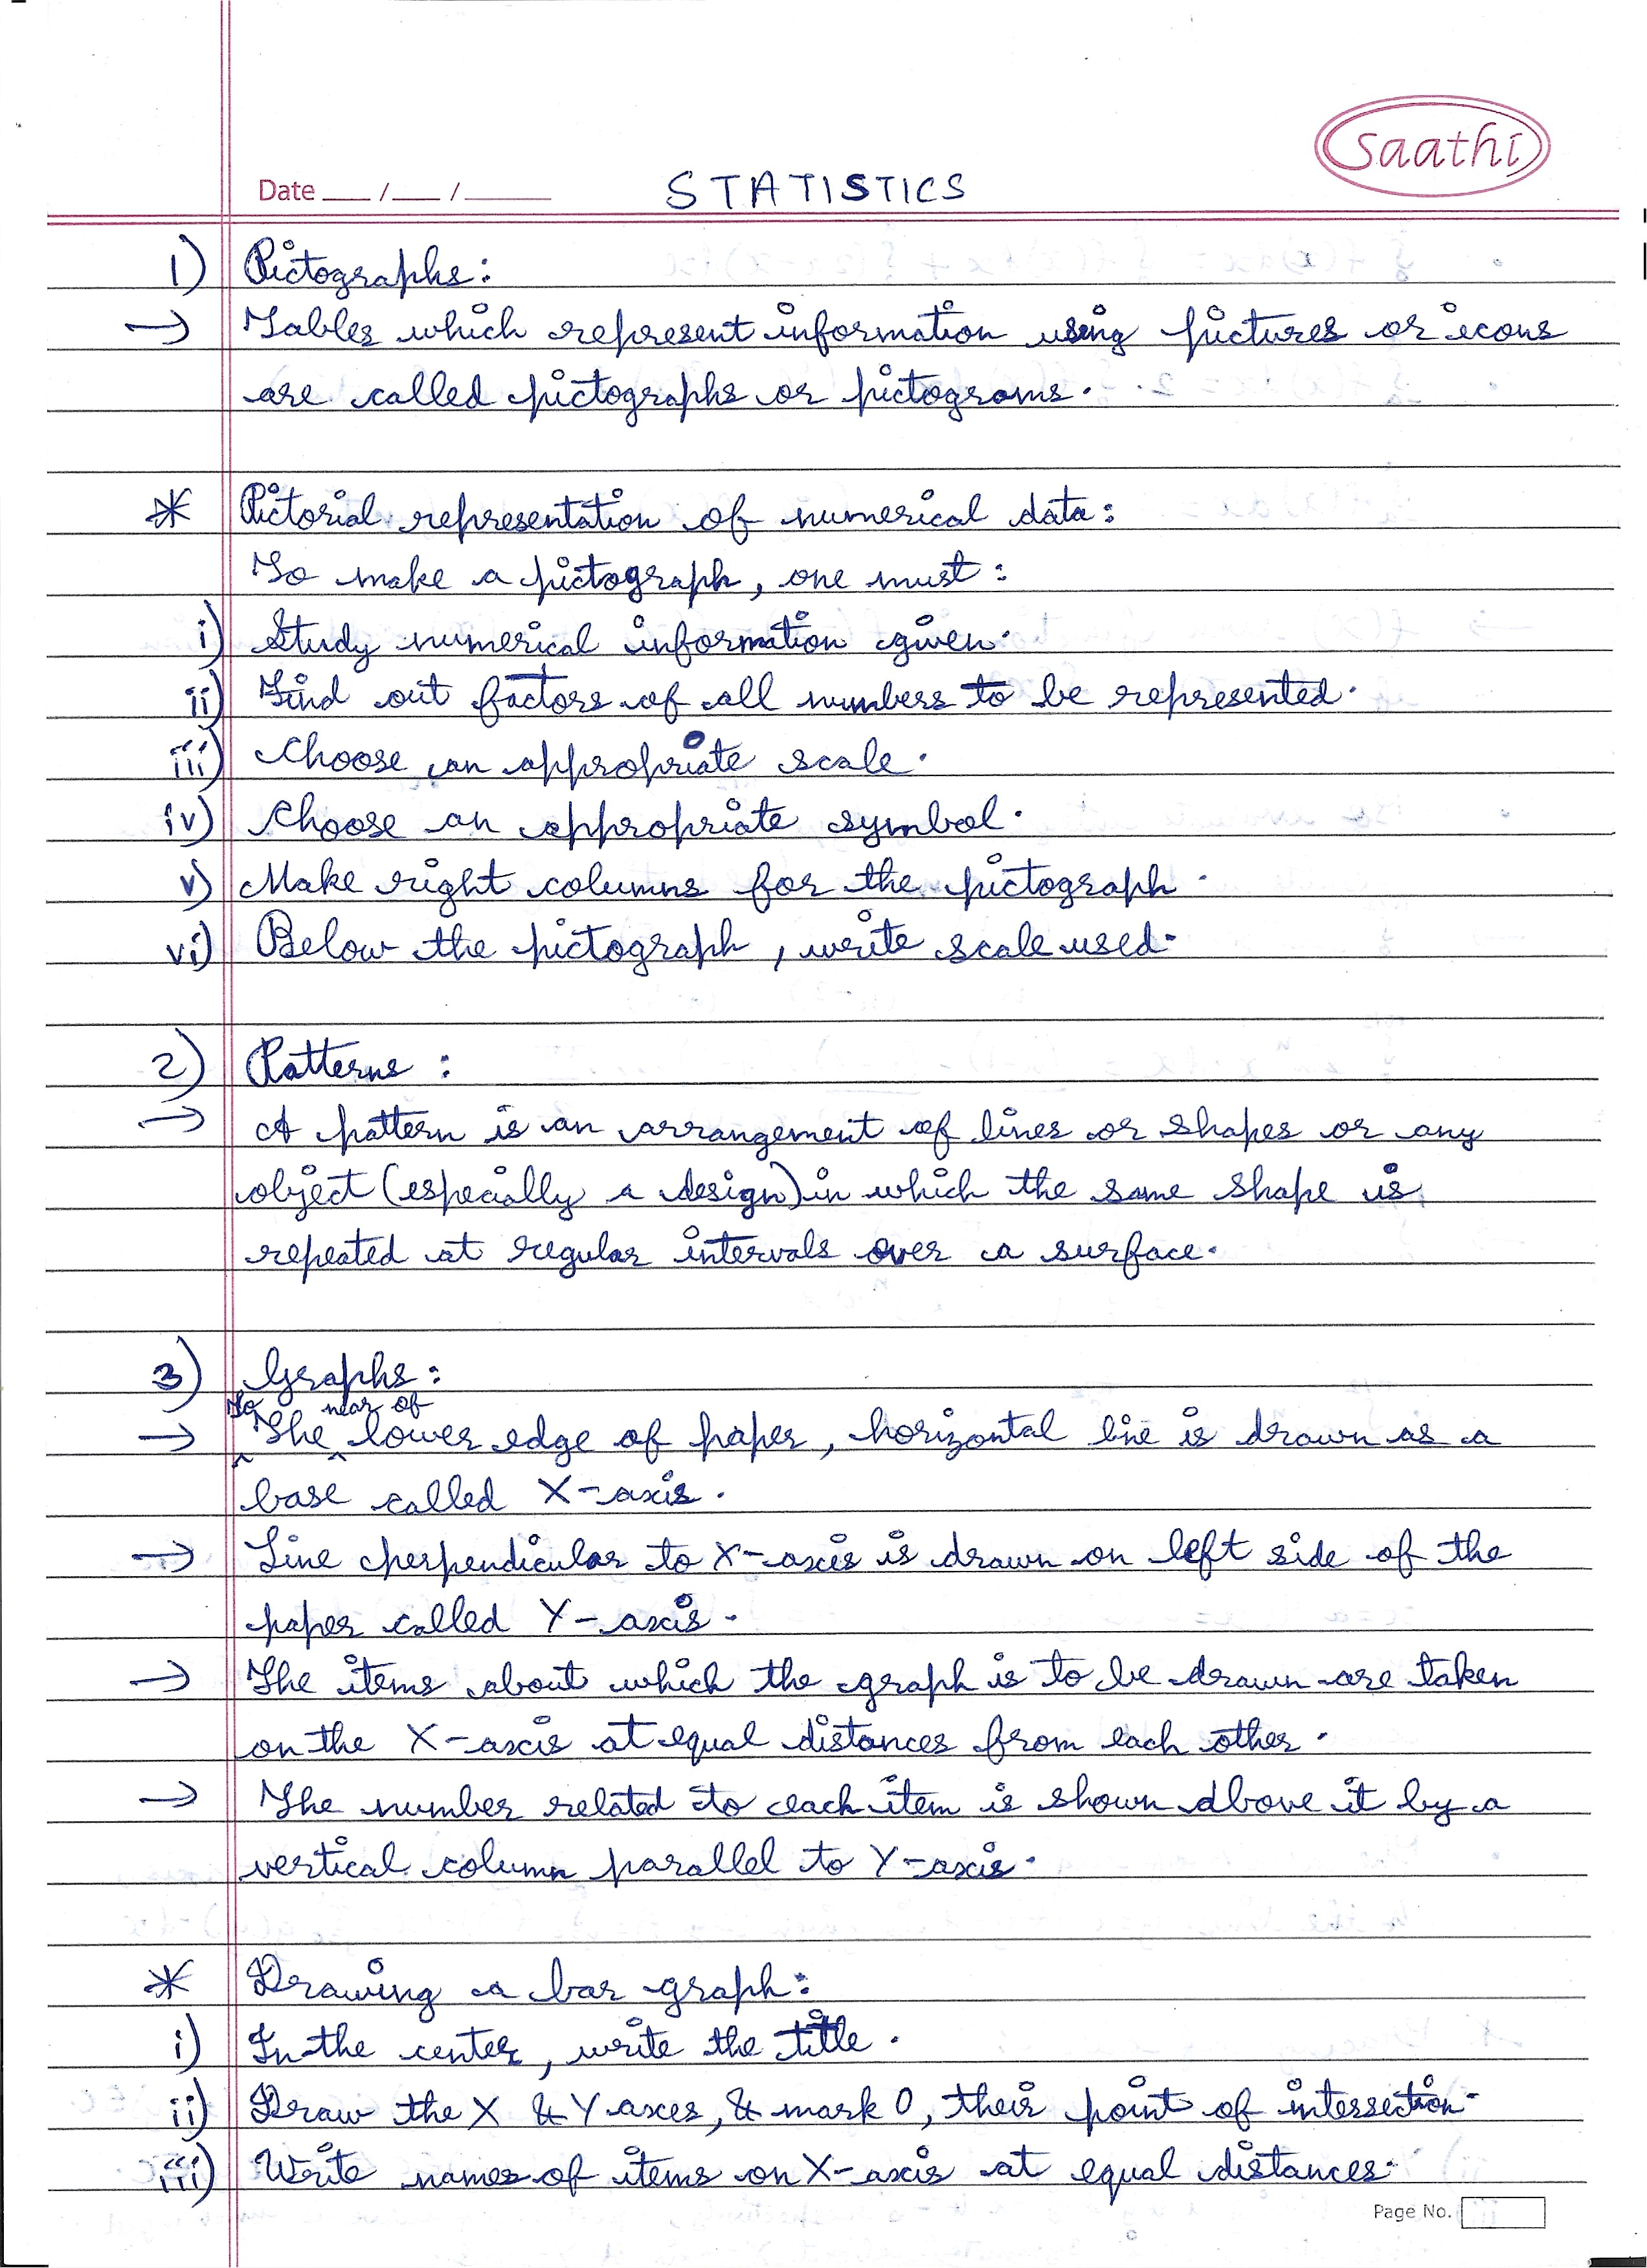 saathi
Date ___/___/______ STATISTICS
1) Pictographs:
→ Tables which represent information using pictures or icons
are called pictographs or pictograms.
* Pictorial representation of numerical data:
To make a pictograph, one must:
i) Study numerical information given.
ii) Find out factors of all numbers to be represented.
iii) Choose an appropriate scale.
iv) Choose an appropriate symbol.
v) Make right columns for the pictograph.
vi) Below the pictograph, write scale used.
2) Patterns:
→ A pattern is an arrangement of lines or shapes or any
object (especially a design) in which the same shape is
repeated at regular intervals over a surface.
3) Graphs:
To near of
→ The lower edge of paper, horizontal line is drawn as a
base called X-axis.
→ Line perpendicular to X-axis is drawn on left side of the
paper called Y-axis.
→ The items about which the graph is to be drawn are taken
on the X-axis at equal distances from each other.
→ The number related to each item is shown above it by a
vertical column parallel to Y-axis.
* Drawing a bar graph:
i) In the center, write the title.
ii) Draw the X & Y axes, & mark 0, their point of intersection.
iii) Write names of items on X-axis at equal distances.
Page No.